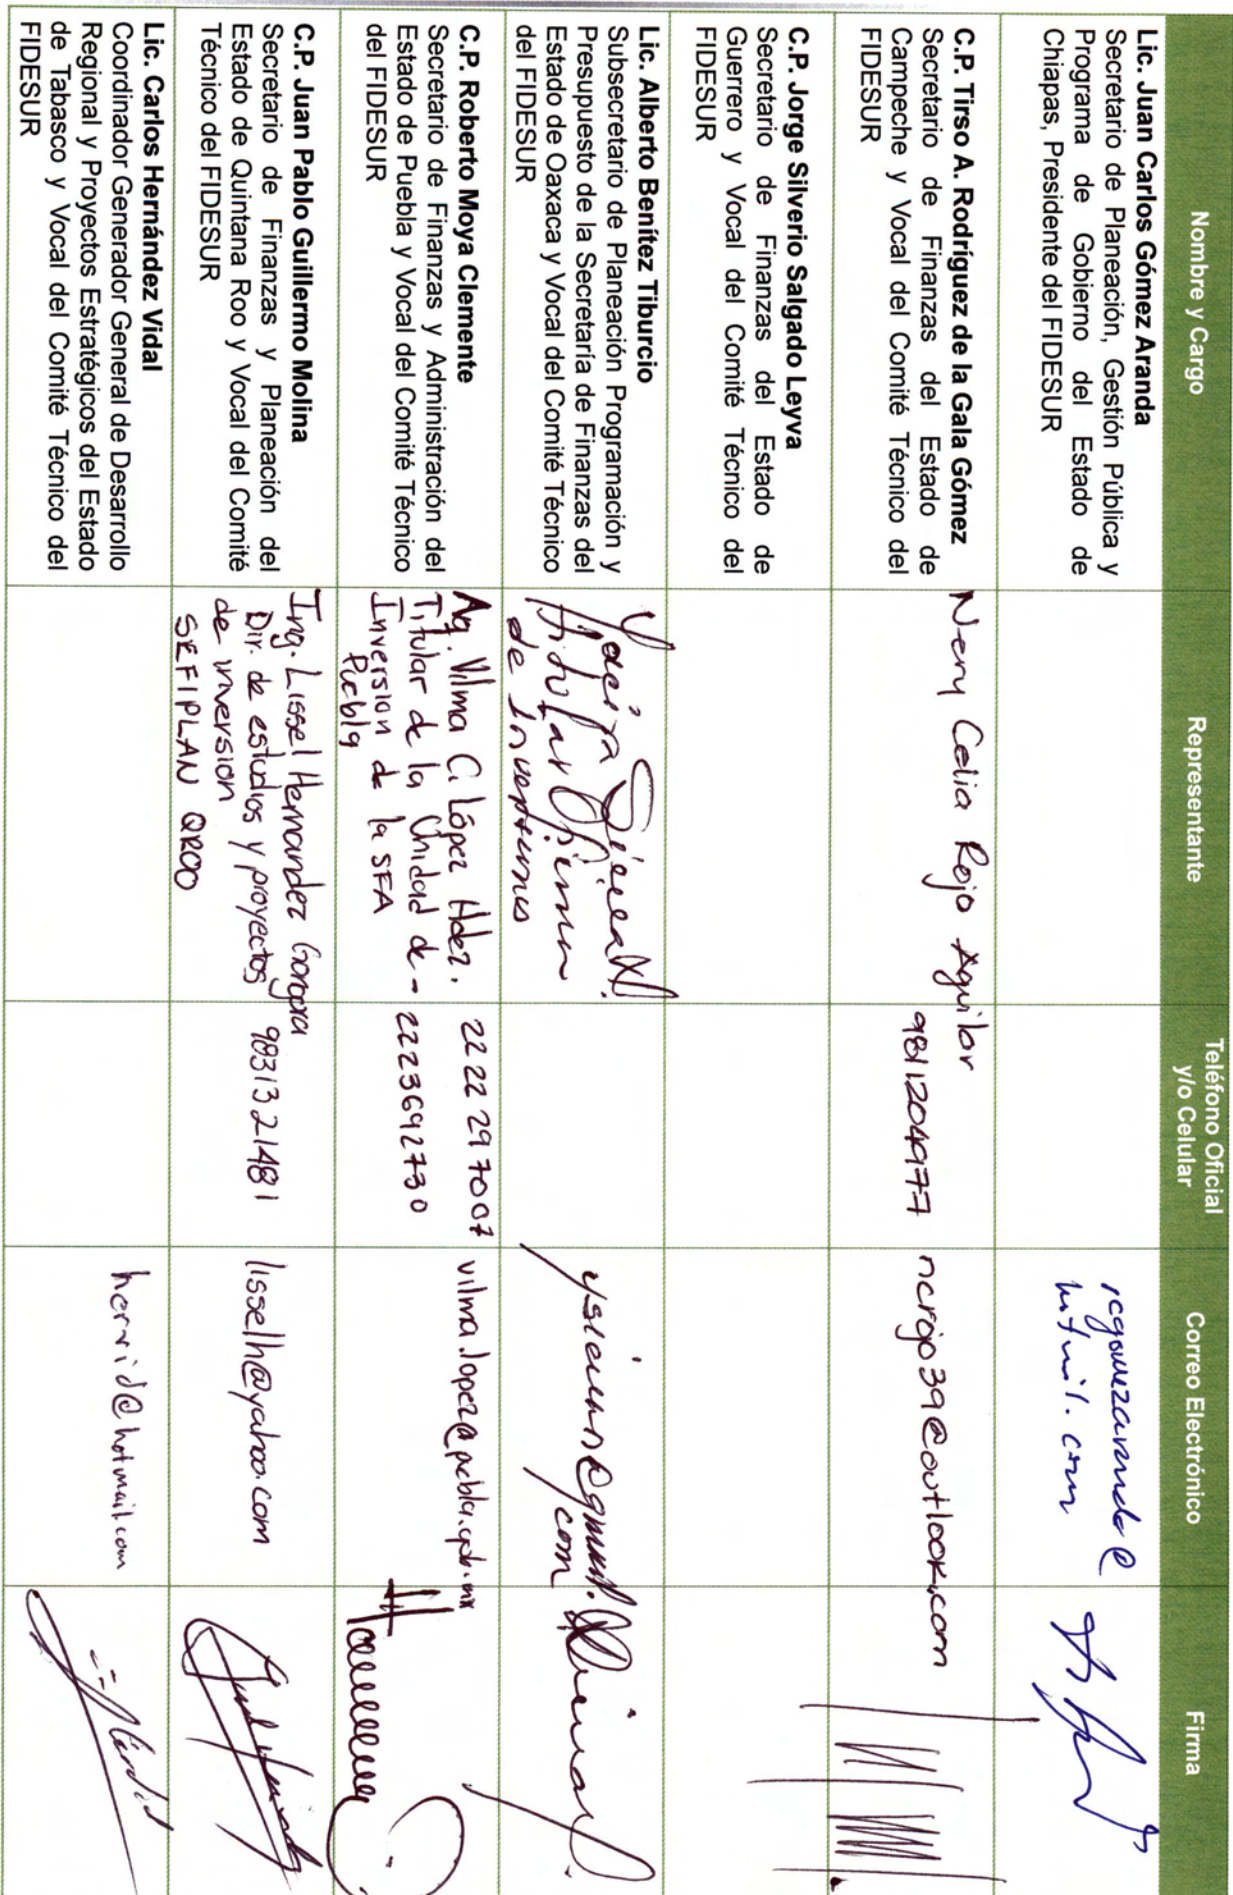 Nombre y Cargo
Representante
Teléfono Oficial
y/o Celular
Correo Electrónico
Firma
Lic. Juan Carlos Gómez Aranda
Secretario de Planeación, Gestión Pública y
Programa de Gobierno del Estado de
Chiapas, Presidente del FIDESUR
C.P. Tirso A. Rodríguez de la Gala Gómez
Secretario de Finanzas del Estado de
Campeche y Vocal del Comité Técnico del
FIDESUR
Nery Celia Rejo Aguilar
9811204977
ncrojo39@outlook.com
C.P. Jorge Silverio Salgado Leyva
Secretario de Finanzas del Estado de
Guerrero y Vocal del Comité Técnico del
FIDESUR
Lic. Alberto Benítez Tiburcio
Subsecretario de Planeación Programación y
Presupuesto de la Secretaría de Finanzas del
Estado de Oaxaca y Vocal del Comité Técnico
del FIDESUR
de Inversiones
com
C.P. Roberto Moya Clemente
Secretario de Finanzas y Administración del
Estado de Puebla y Vocal del Comité Técnico
del FIDESUR
Vilma C. López Hdez.
Titular de la Unidad de
Inversion de la SFA
Puebla
22 22 29 7007
2223692730
C.P. Juan Pablo Guillermo Molina
Secretario de Finanzas y Planeación del
Estado de Quintana Roo y Vocal del Comité
Técnico del FIDESUR
Ing. Lissel Hernandez Gongora
Dir. de estudios y proyectos
de inversion
SEFIPLAN QROO
9831321481
lisselh@yahoo.com
Lic. Carlos Hernández Vidal
Coordinador Generador General de Desarrollo
Regional y Proyectos Estratégicos del Estado
de Tabasco y Vocal del Comité Técnico del
FIDESUR
hervid@hotmail.com